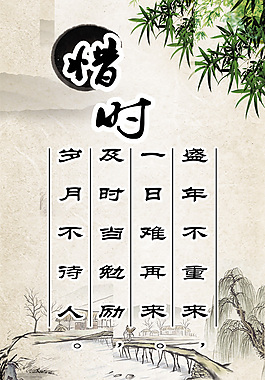 惜时
盛年不重来，
一日难再来。
及时当勉励，
岁月不待人。